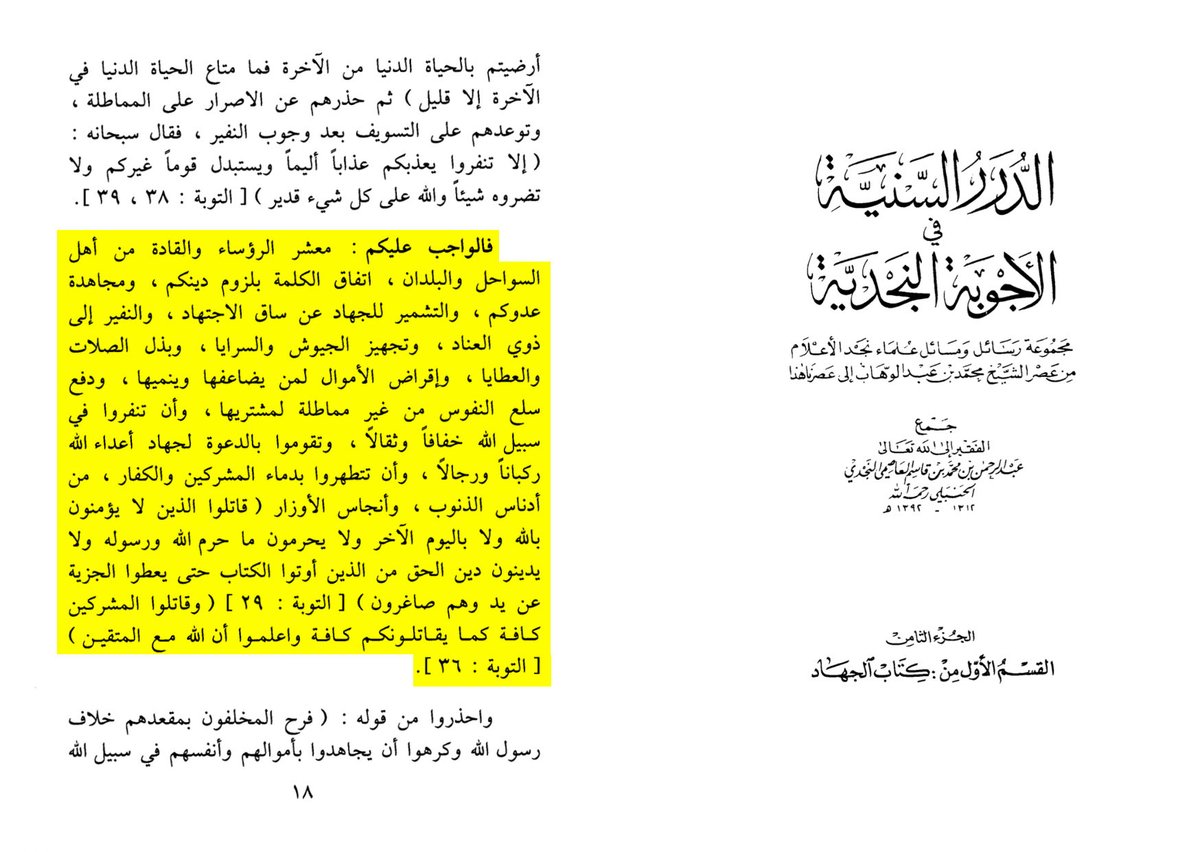 الدُّرَرُ السَّنِيَّة
في
الأَجْوِبَةِ النَّجْدِيَّة
مجموعة رسائل ومسائل علماء نجد الأعلام
من عصر الشيخ محمد بن عبد الوهاب إلى عصرنا هذا
جمع
الفقير إلى الله تعالى
عبد الرحمن بن محمد بن قاسم العاصمي النجدي
الحنبلي رحمه الله
١٣١٢ - ١٣٩٢ هـ
الجزء الثامن
القسم الأول من : كتاب الجهاد
أرضيتم بالحياة الدنيا من الآخرة فما متاع الحياة الدنيا في
الآخرة إلا قليل ) ثم حذرهم عن الاصرار على المماطلة ،
وتوعدهم على التسويف بعد وجوب النفير ، فقال سبحانه :
( إلا تنفروا يعذبكم عذاباً أليماً ويستبدل قوماً غيركم ولا
تضروه شيئاً والله على كل شيء قدير ) [ التوبة : ٣٨ ، ٣٩ ].
فالواجب عليكم : معشر الرؤساء والقادة من أهل
السواحل والبلدان ، اتفاق الكلمة بلزوم دينكم ، ومجاهدة
عدوكم ، والتشمير للجهاد عن ساق الاجتهاد ، والنفير إلى
ذوي العناد ، وتجهيز الجيوش والسرايا ، وبذل الصلات
والعطايا ، وإقراض الأموال لمن يضاعفها وينميها ، ودفع
سلع النفوس من غير مماطلة لمشتريها ، وأن تنفروا في
سبيل الله خفافاً وثقالاً ، وتقوموا بالدعوة لجهاد أعداء الله
ركباناً ورجالاً ، وأن تتطهروا بدماء المشركين والكفار ، من
أدناس الذنوب ، وأنجاس الأوزار ( قاتلوا الذين لا يؤمنون
بالله ولا باليوم الآخر ولا يحرمون ما حرم الله ورسوله ولا
يدينون دين الحق من الذين أوتوا الكتاب حتى يعطوا الجزية
عن يد وهم صاغرون ) [ التوبة : ٢٩ ] ( وقاتلوا المشركين
كافة كما يقاتلونكم كافة واعلموا أن الله مع المتقين )
[ التوبة : ٣٦ ].
واحذروا من قوله : ( فرح المخلفون بمقعدهم خلاف
رسول الله وكرهوا أن يجاهدوا بأموالهم وأنفسهم في سبيل الله
١٨